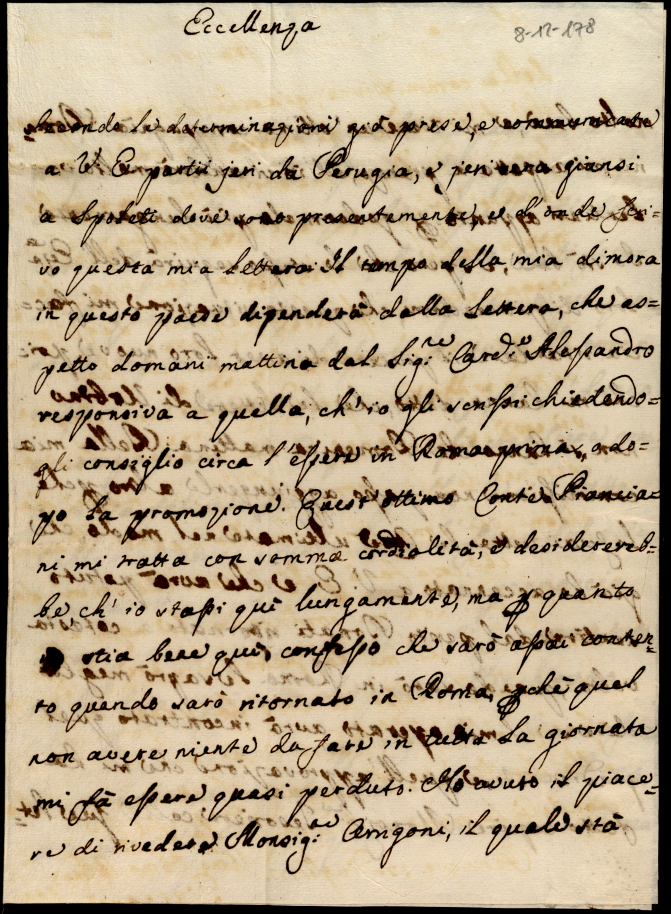 Eccellenza
8-12-178
Secondo le determinazioni già prese, e comunicate
a V. E. partii jeri da Perugia, e jeri sera giunsi
a Spoleti dove sono presentemente, e d'onde scri-
vo questa mia Lettera. Il tempo della mia dimora
in questo paese dipenderà dalla Lettera, che as=
petto domani mattina dal Sig:re Card:e Alessandro
responsiva a quella, ch'io gli scrissi chiedendo=
gli consiglio circa l'essere in Roma prima, o do=
po la promozione. Quest'ottimo Conte Pianciα-
ni mi tratta con somma cordialità, e desiderereb=
be ch'io stassi quì lungamente, ma p quanto
stia bene quì, confesso che sarò assai conten=
to quando sarò ritornato in Roma, pchè quel
non avere niente da fare in tutta la giornata
mi fà essere quasi perduto. Hò avuto il piace=
re di rivedere Monsig:re Arrigoni, il quale stà